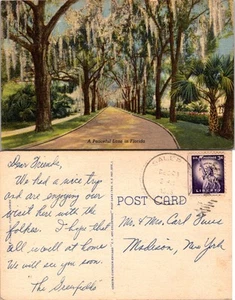 A Peaceful Lane in Florida
Dear Friends,
We had a nice trip
and are enjoying our
rest here with the
folks. I hope that
all is well at home
We will see you soon.
"The Greenfields"
POST CARD
Mr. & Mrs. Carl
Madison, New York
3¢
LIBERTY